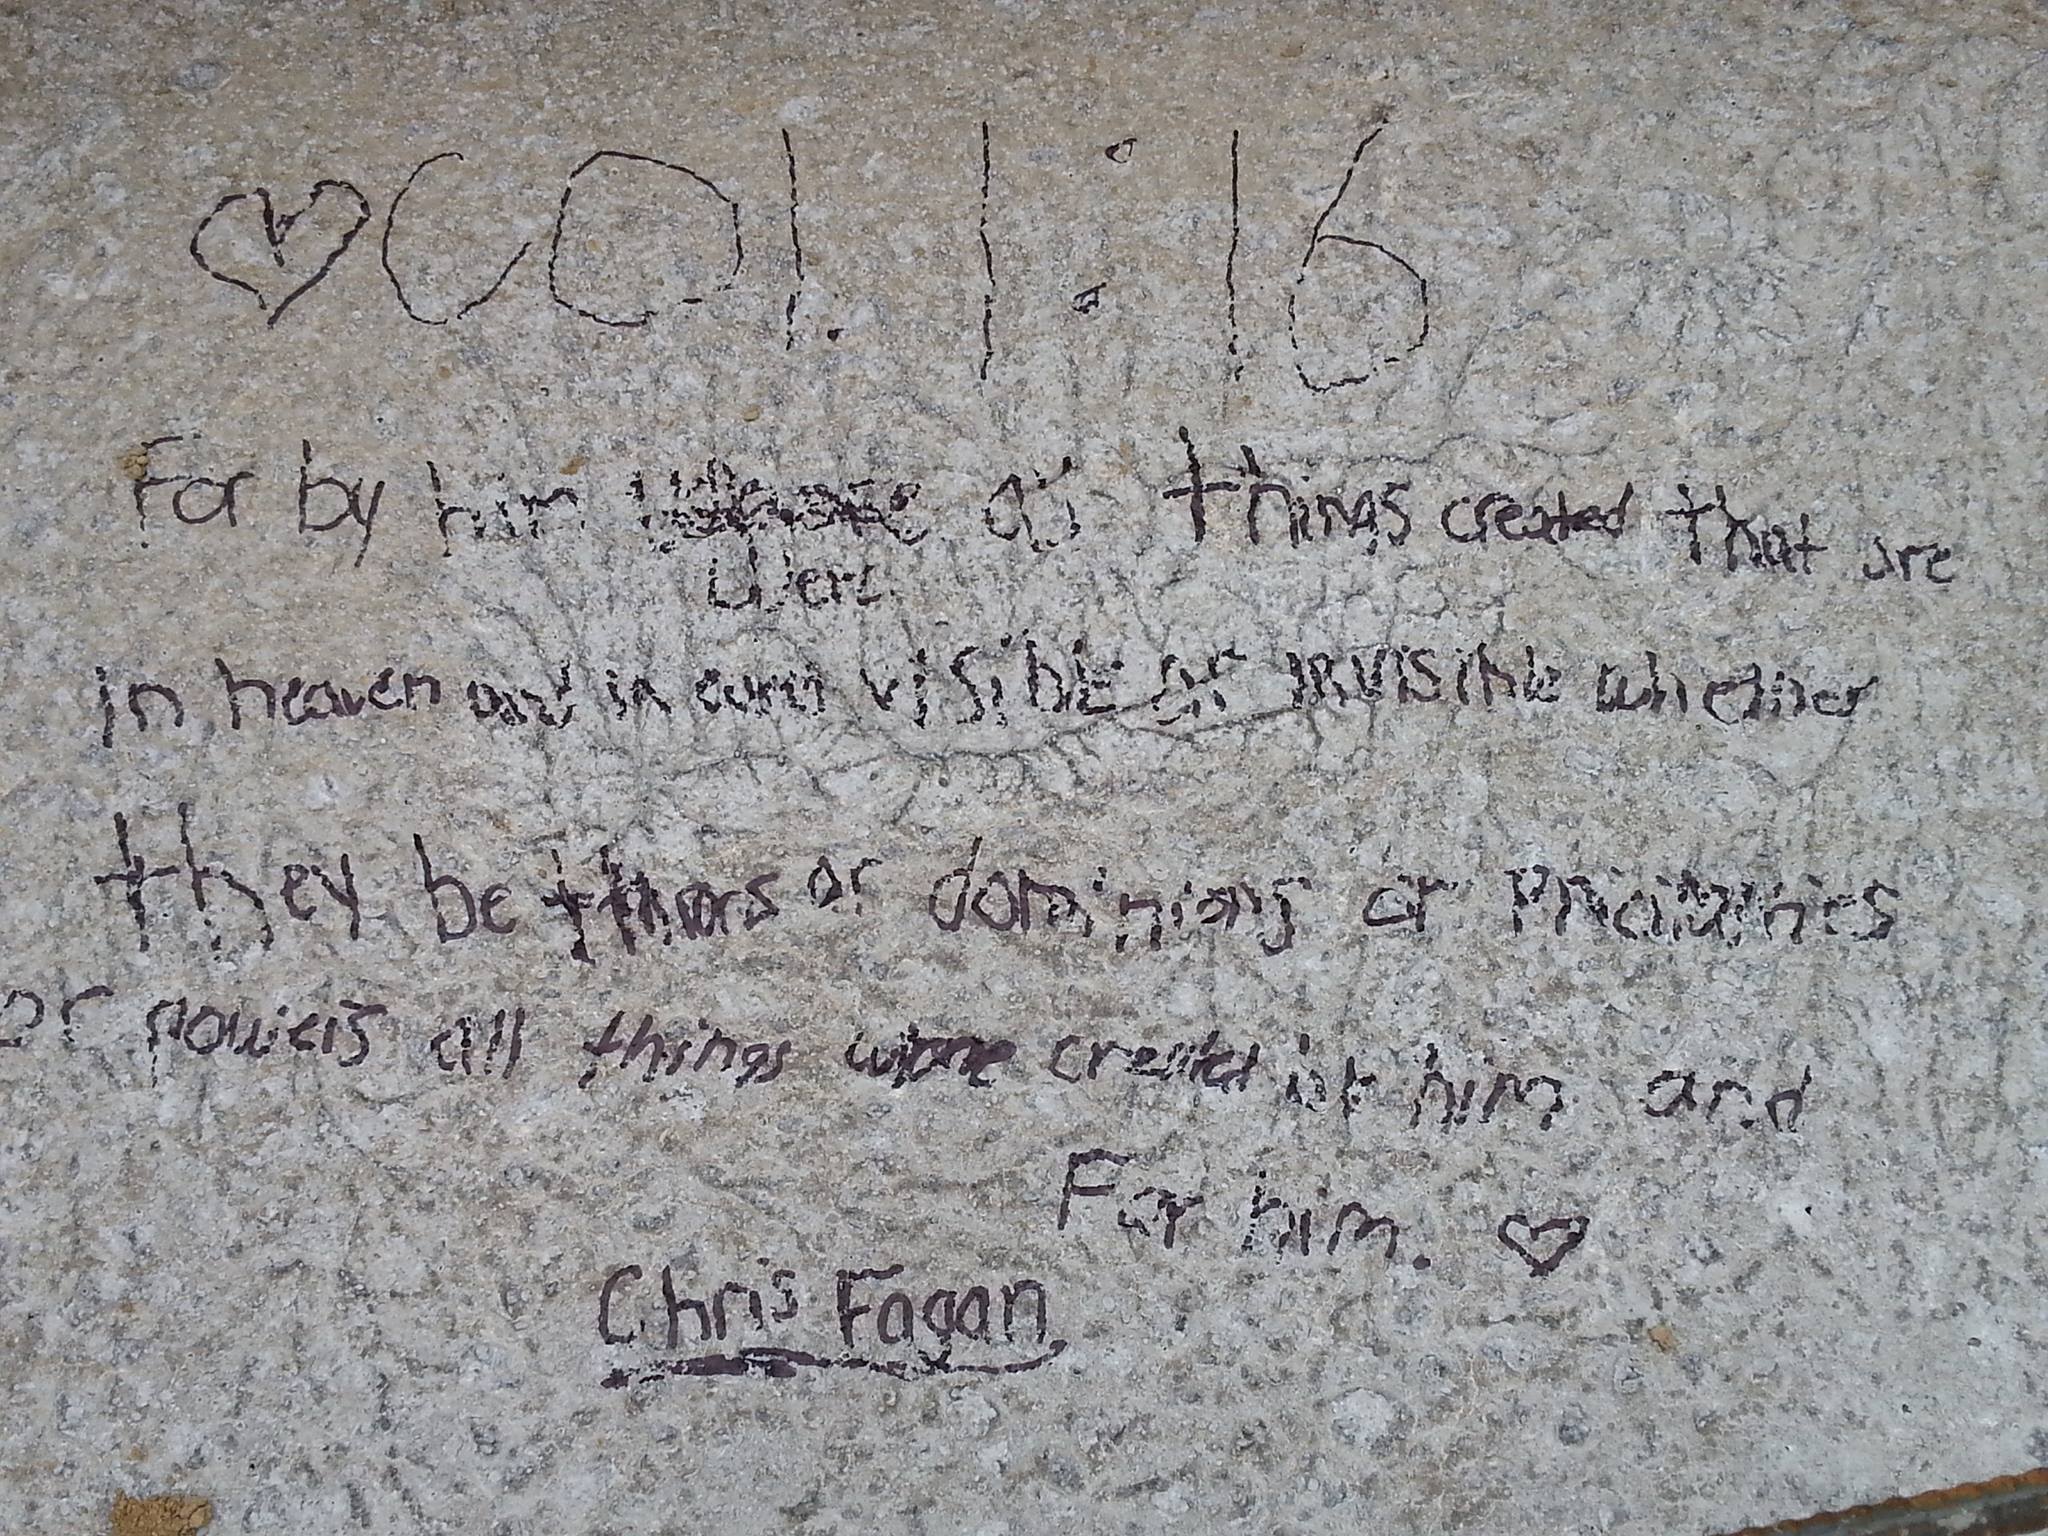 Col. 1:16
For by him were all things created that are
in heaven and in earth visible or invisible whether
they be thrones or dominions or
or powers all things were created by him and
For him.
Chris Fagan